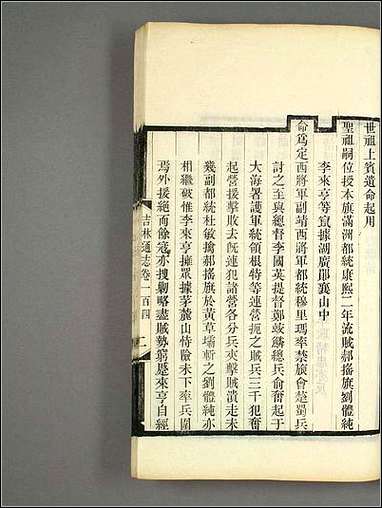 世祖上賓遺命起用
聖祖嗣位授本旗滿洲都統康熙二年流賊郝搖旗劉體純
李來亨等竄據湖廣鄖襄山中
命爲定西將軍副靖西將軍都統穆里瑪率禁旅會楚蜀兵
討之至與總督李國英提督鄭蛟麟總兵俞奮起于
大海署護軍統領根特等連營扼之賊兵三千犯奮
起營援擊敗去旣連犯諸營各分兵夾擊賊潰走未
幾副都統杜敏擒郝搖旗於黃草壩斬之劉體純亦
相繼破惟李來亨擁眾據茅麓山恃險未下率兵圍
焉外援絕而餘寇亦搜剿略盡賊勢窮蹙來亨自經
吉林通志卷一百四
二